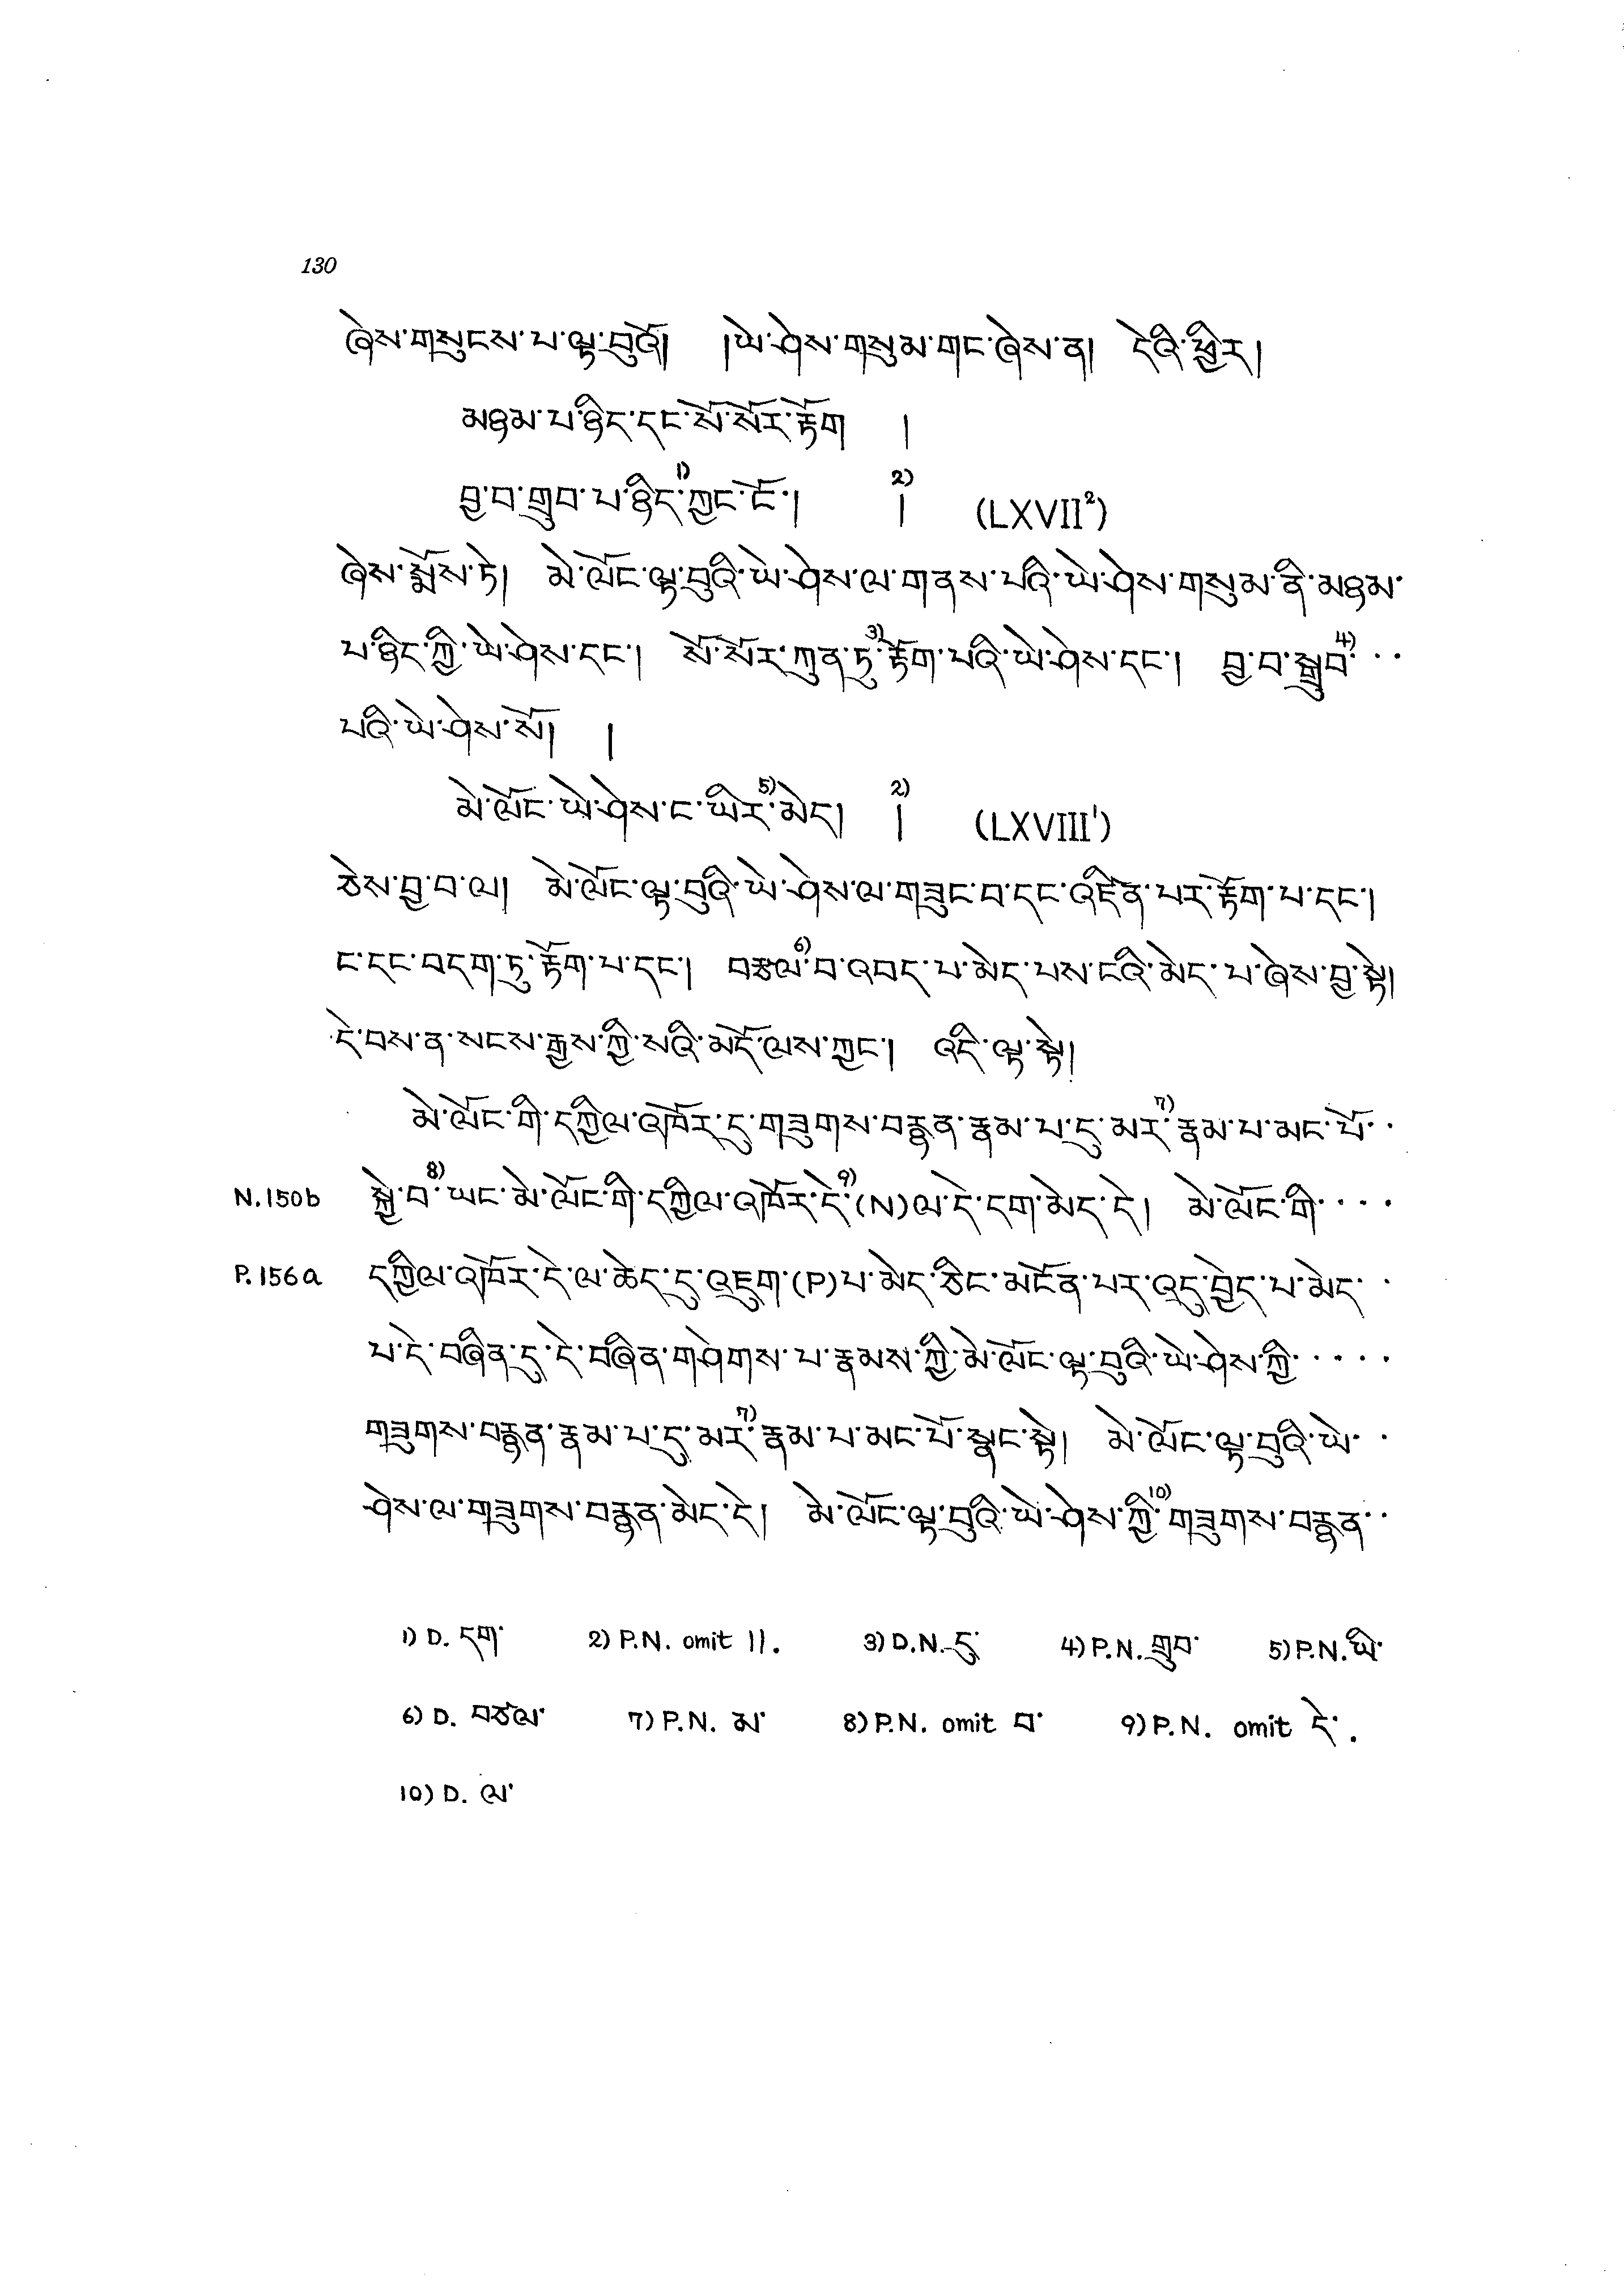 130
ཞེས་གསུངས་པ་ལྟ་བུའོ། །ཡེ་ཤེས་གསུམ་གང་ཞེས་ན། དེའི་ཕྱིར།
མཉམ་པ་ཉིད་དང་སོ་སོར་རྟོག །
བྱ་བ་གྲུབ་པ་ཉིད་1)ཀྱང་ངོ་། 2)། (LXVII²)
ཞེས་སྨོས་ཏེ། མེ་ལོང་ལྟ་བུའི་ཡེ་ཤེས་ལ་གནས་པའི་ཡེ་ཤེས་གསུམ་ནི་མཉམ་
པ་ཉིད་ཀྱི་ཡེ་ཤེས་དང་། སོ་སོར་ཀུན་ཏུ་3)རྟོག་པའི་ཡེ་ཤེས་དང་། བྱ་བ་སྒྲུབ་4)··
པའི་ཡེ་ཤེས་སོ། །
མེ་ལོང་ཡེ་ཤེས་ང་ཡིར་5)མེད། 2)། (LXVIII¹)
ཅེས་བྱ་བ་ལ། མེ་ལོང་ལྟ་བུའི་ཡེ་ཤེས་ལ་གཟུང་བ་དང་འཛིན་པར་རྟོག་པ་དང་།
ང་དང་བདག་ཏུ་རྟོག་པ་དང་། བརྩལ་6)བ་འབད་པ་མེད་པས་ངའི་མེད་པ་ཞེས་བྱ་སྟེ།
དེ་བས་ན་སངས་རྒྱས་ཀྱི་སའི་མདོ་ལས་ཀྱང་། འདི་ལྟ་སྟེ།
མེ་ལོང་གི་དཀྱིལ་འཁོར་དུ་གཟུགས་བརྙན་རྣམ་པ་དུ་མར་7)རྣམ་པ་མང་པོ་··
N.150b སྐྱེ་བ་8)ཡང་མེ་ལོང་གི་དཀྱིལ་འཁོར་དེ་9)(N)ལ་དེ་དག་མེད་དེ། མེ་ལོང་གི་····
P.156a དཀྱིལ་འཁོར་དེ་ལ་ཆེད་དུ་འཇུག་(P)པ་མེད་ཅིང་མངོན་པར་འདུ་བྱེད་པ་མེད་··
པ་དེ་བཞིན་དུ་དེ་བཞིན་གཤེགས་པ་རྣམས་ཀྱི་མེ་ལོང་ལྟ་བུའི་ཡེ་ཤེས་ཀྱི་·····
གཟུགས་བརྙན་རྣམ་པ་དུ་མར་7)རྣམ་པ་མང་པོ་སྣང་སྟེ། མེ་ལོང་ལྟ་བུའི་ཡེ་··
ཤེས་ལ་གཟུགས་བརྙན་མེད་དེ། མེ་ལོང་ལྟ་བུའི་ཡེ་ཤེས་ཀྱི་10)གཟུགས་བརྙན་··
1) D. དག་ 2) P.N. omit །།. 3) D.N. དུ་ 4) P.N. གྲུབ་ 5) P.N. ཡི་
6) D. བཙལ་ 7) P.N. མ་ 8) P.N. omit བ་ 9) P.N. omit དེ་.
10) D. ལ་